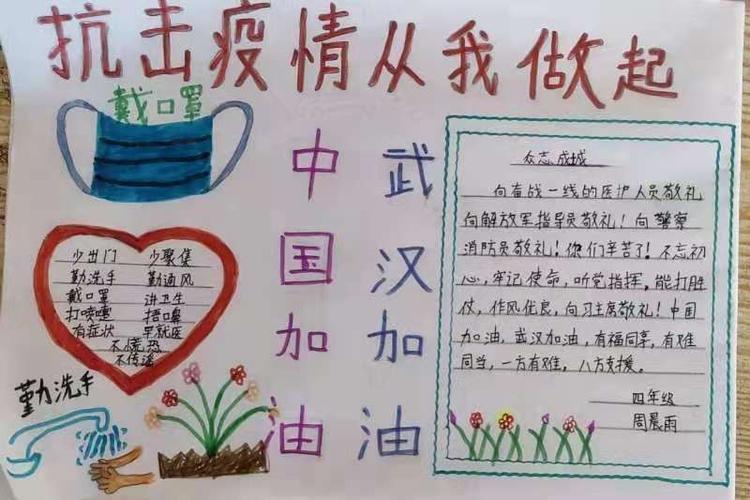 抗击疫情从我做起
戴口罩
少出门 少聚集
勤洗手 勤通风
戴口罩 讲卫生
打喷嚏 捂口鼻
有症状 早就医
不慌恐
不传谣
勤洗手
中国加油
武汉加油
众志成城
向奋战一线的医护人员敬礼
向解放军指导员敬礼！向警察
消防员敬礼！你们辛苦了！不忘初
心，牢记使命，听党指挥，能打胜
仗，作风优良，向习主席敬礼！中国
加油，武汉加油，有福同享，有难
同当，一方有难，八方支援。
四年级
周晨雨